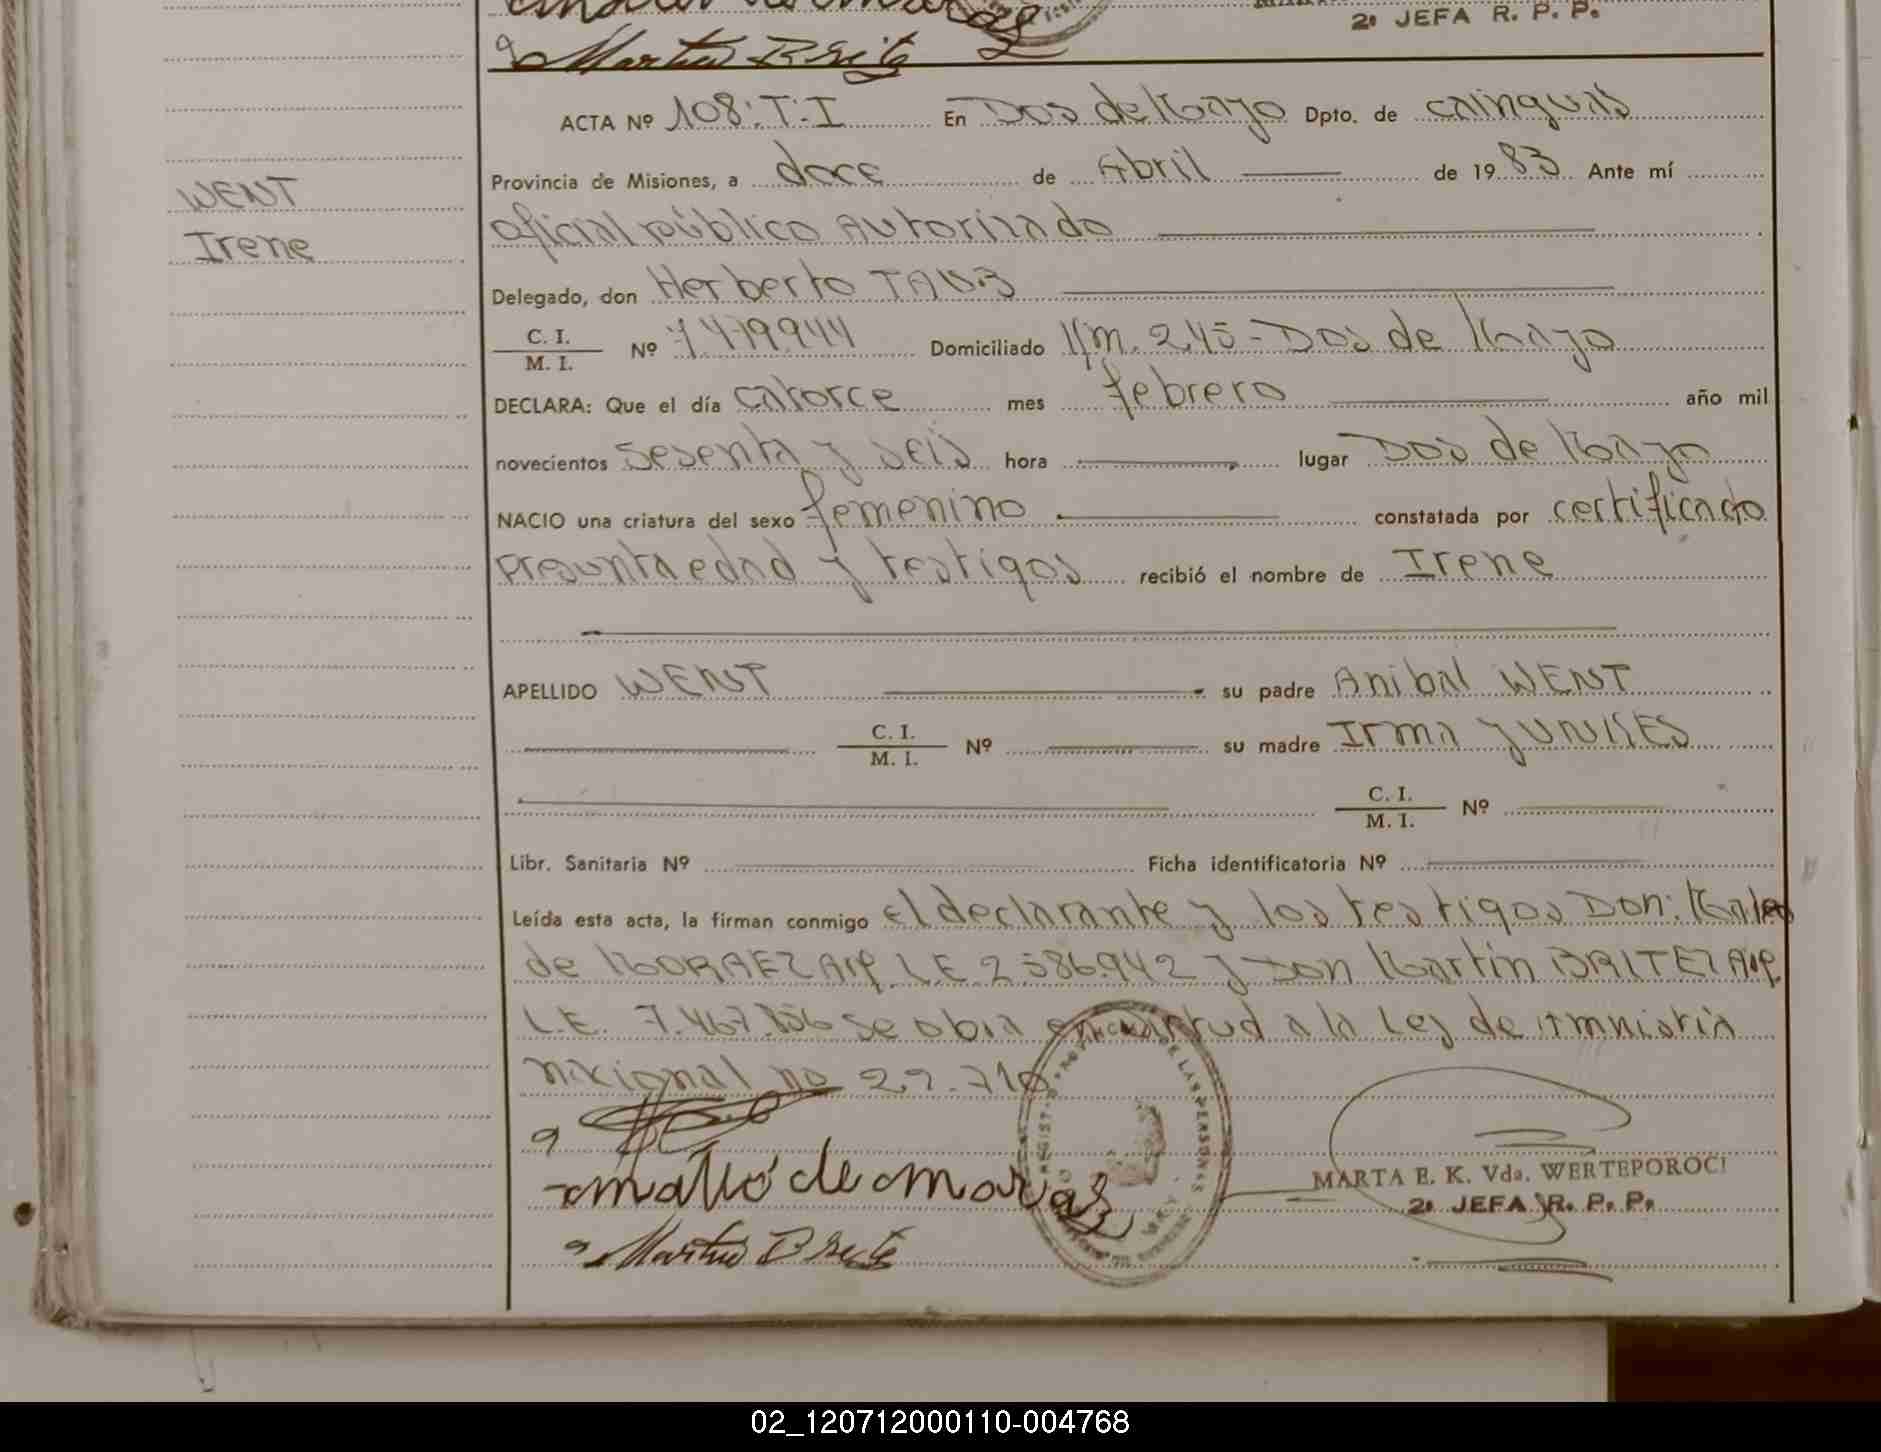 2ª JEFA R. P. P.
Martin Brite
ACTA Nº 108:T:I En Dos de Mayo Dpto. de cainguas
Provincia de Misiones, a doce de Abril de 1983 Ante mí
oficial público Autorizado
Delegado, don Herberto
C. I.
M. I. Nº 7.479.944 Domiciliado Km. 245 - Dos de Mayo
DECLARA: Que el día catorce mes febrero año mil
novecientos sesenta y seis hora lugar Dos de Mayo
NACIO una criatura del sexo femenino constatada por certificado
presunta edad y testigos recibió el nombre de Irene
APELLIDO WENT su padre Anibal WENT
C. I.
M. I. Nº su madre Irma
C. I.
M. I. Nº
Libr. Sanitaria Nº Ficha identificatoria Nº
Leída esta acta, la firman conmigo el declarante y los testigos Don:
de MORAEZ Arg. L.E. 2.586.942 y Don Martin BRITEZ Arg.
L.E. 7.467.856 se obra en virtud a la Ley de Amnistia
nacional no 22.710
de moraez
Martin Brite
WENT
Irene
MARTA E. K. Vda. WERTEPOROCI
2ª JEFA R. P. P.
02_120712000110-004768